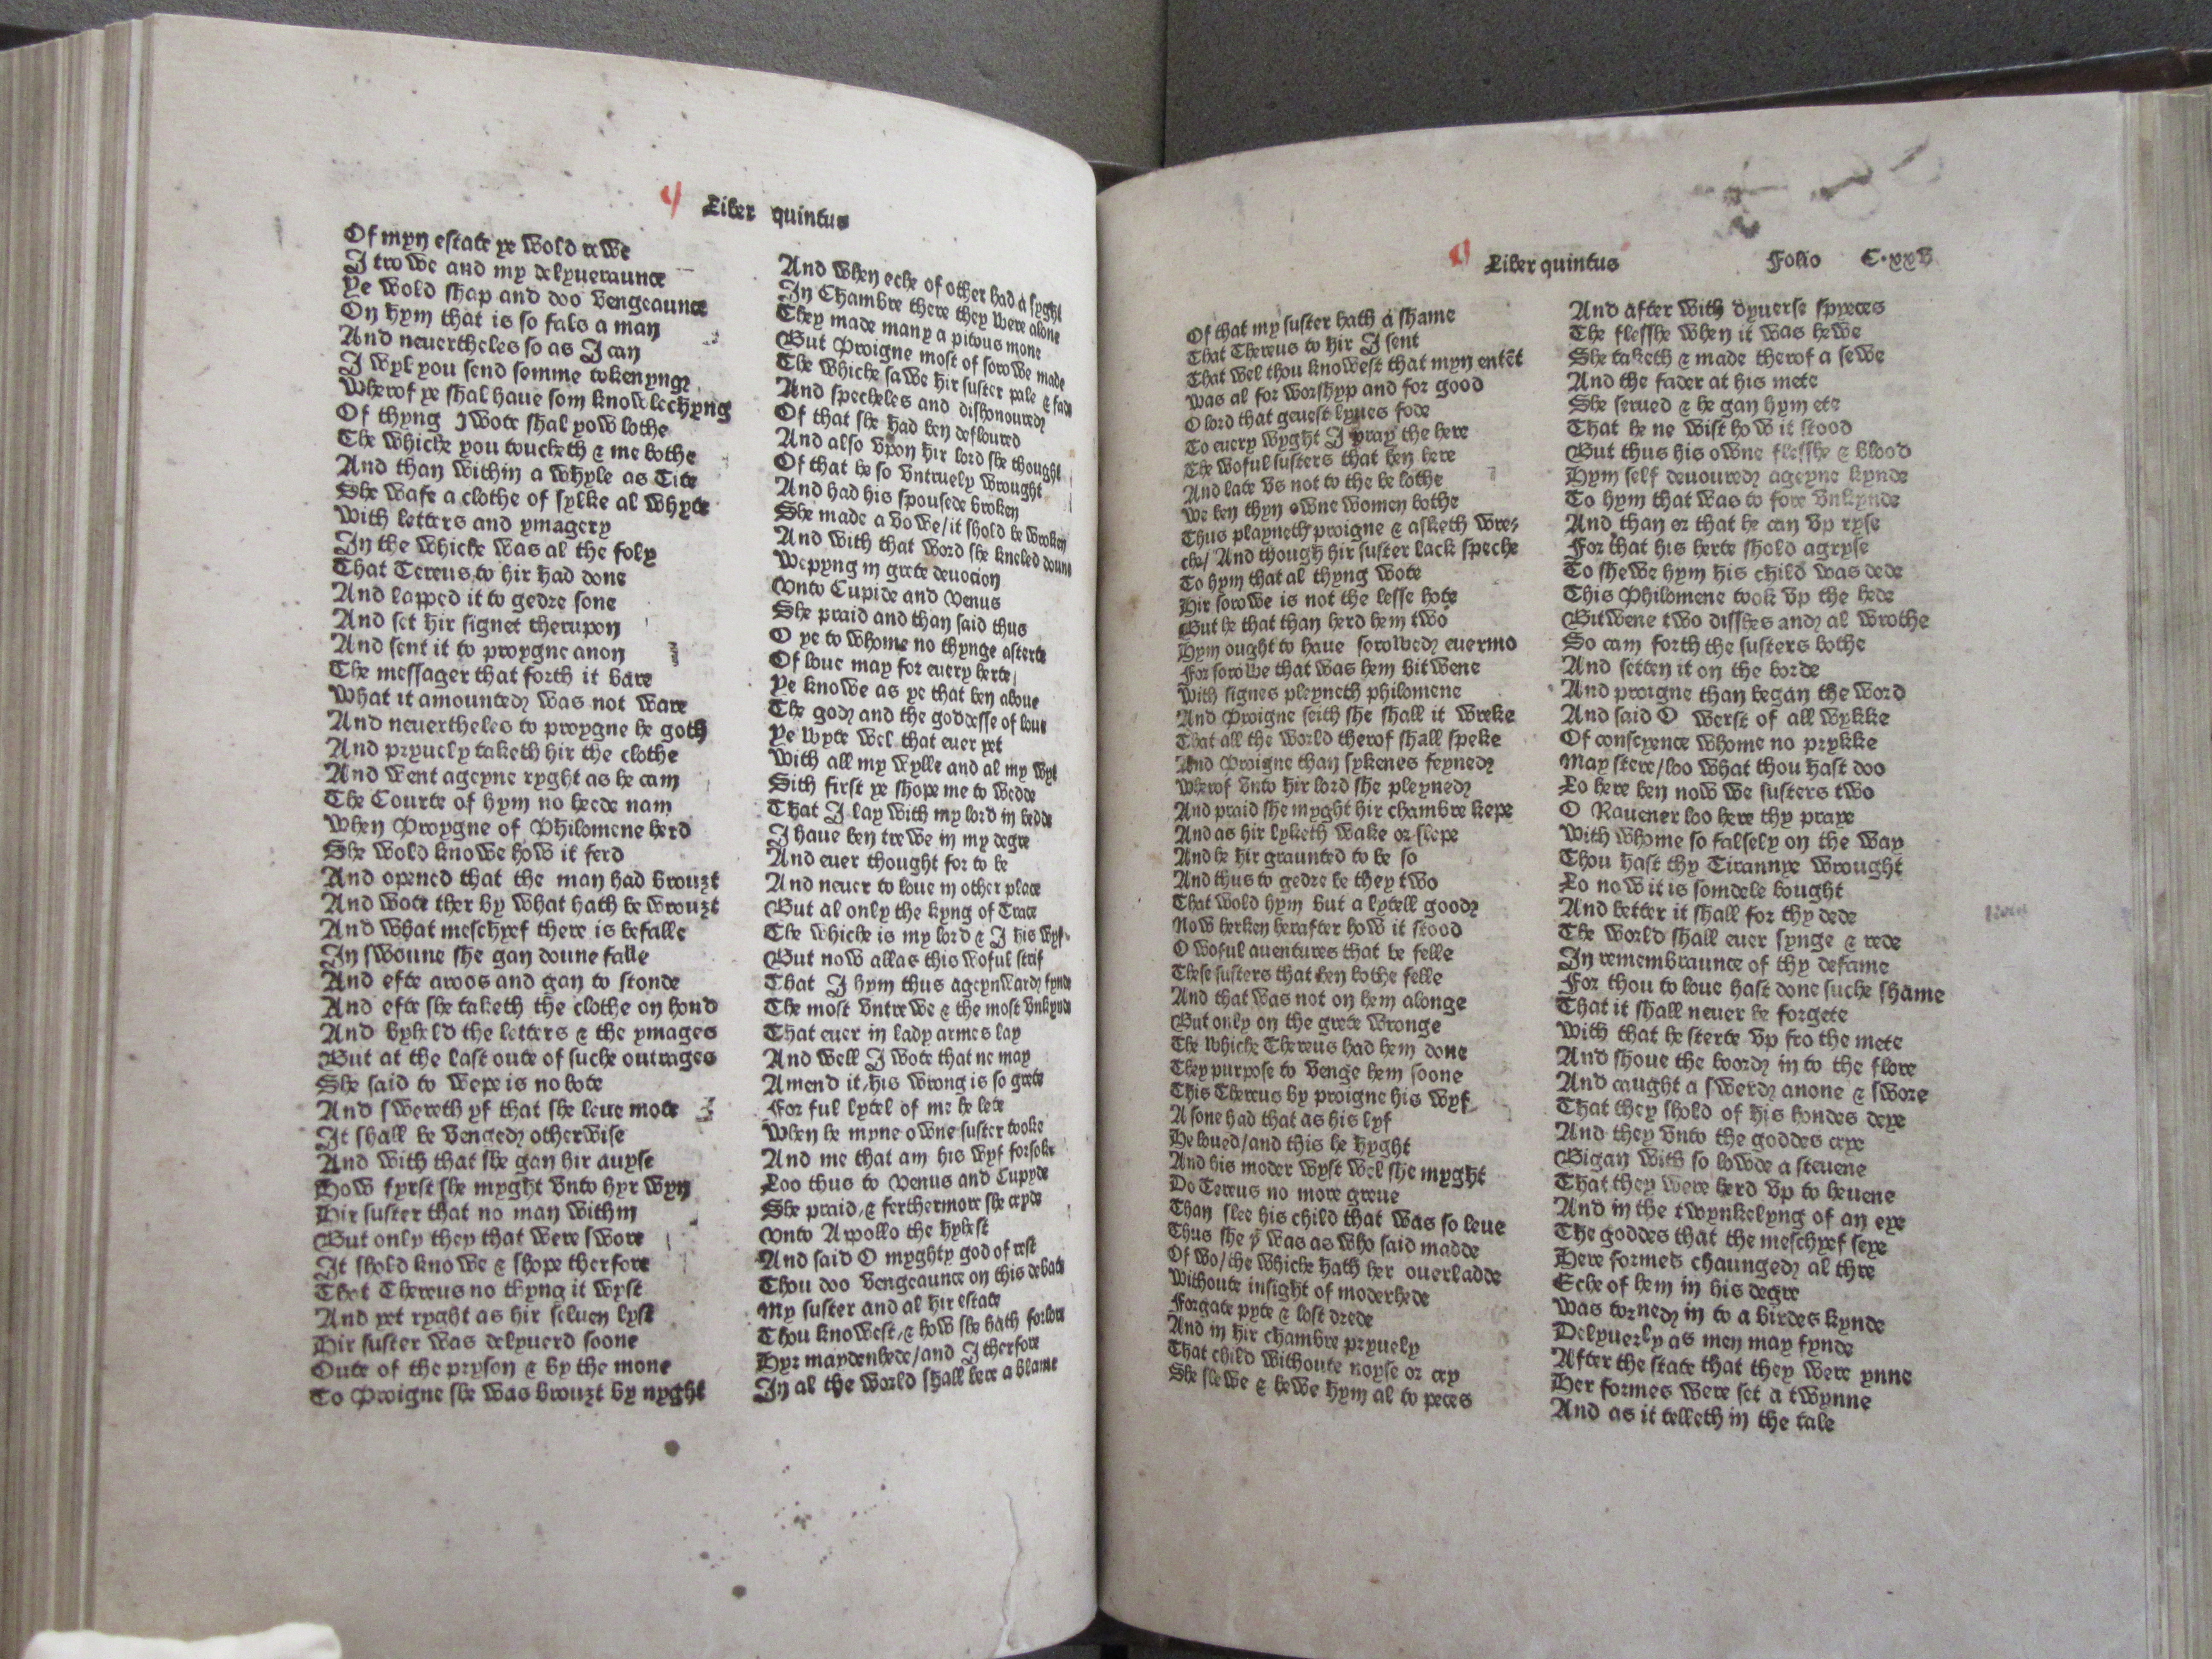 Liber quintus
Of myn estate ye wold rewe
I trowe and my delyueraunce
Ye wold shap and doo vengeaunce
On hym that is so fals a man
And neuertheles so as I can
I wyl you send somme tokenyng
Wherof ye shal haue som knowlechyng
Of thyng I wote shal yow lothe
The whiche you toucheth & me bothe
And than within a whyle as Tite
She wafe a clothe of sylke al whyte
With letters and ymagery
In the whiche was al the foly
That Tereus to hir had done
And lapped it to gedre sone
And set hir signet therupon
And sent it to proygne anon
The messager that forth it bare
What it amounted was not ware
And neuertheles to proygne he goth
And pryuely taketh hir the clothe
And went ageyne ryght as he cam
The Courte of hym no heede nam
When Proygne of Philomene herd
She wold knowe how it ferd
And opened that the man had brouzt
And wote ther by what hath be wrouzt
And what meschyef there is befalle
In swoune she gan doune falle
And efte aroos and gan to stonde
And efte she taketh the clothe on hond
And byheld the letters & the ymages
But at the last oute of suche outrages
She said to wepe is no bote
And swereth yf that she leue mote
It shall be venged otherwise
And with that she gan hir auyse
How fyrst she myght vnto hyr wyn
Hir suster that no man within
But only they that were swore
It shold knowe & shope therfore
That Thereus no thyng it wyst
And yet ryght as hir seluen lyst
Hir suster was delyuerd soone
Oute of the pryson & by the mone
To Proigne she was brouzt by nyght
And when eche of other had a syght
In Chambre there they were alone
They made many a pitous mone
But Proigne most of sorowe made
The whiche sawe hir suster pale & fade
And specheles and dishonoured
Of that she had ben defloured
And also vpon hir lord she thought
Of that he so vntruely wrought
And had his spousede broken
She made a vowe/it shold be wroken
And with that word she kneled doune
Wepyng in grete deuocion
Vnto Cupide and Venus
She praid and than said thus
O ye to whome no thynge asterte
Of loue may for euery herte
Ye knowe as ye that ben aboue
The god and the goddesse of loue
Ye wyte wel that euer yet
With all my wylle and al my wyt
Sith first ye shope me to wedde
That I lay with my lord in bedde
I haue ben trewe in my degre
And euer thought for to be
And neuer to loue in other place
But al only the kyng of Trace
The whiche is my lord & I his wyf
But now allas this woful strif
That I hym thus ageynward fynde
The most vntrewe & the most vnkynde
That euer in lady armes lay
And well I wote that ne may
Amend it/his wrong is so grete
For ful lytel of me he lete
When he myne owne suster tooke
And me that am his wyf forsoke
Loo thus to Venus and Cupyde
She praid/& ferthermore she cryde
Vnto Appollo the hyhest
And said O myghty god of rest
Thou doo vengeaunce on this debate
My suster and al hir estate
Thou knowest/& how she hath forlore
Hyr maydenhede/and I therfore
In al the world shall bere a blame
Liber quintus Folio C.xxv
Of that my suster hath a shame
That Thereus to hir I sent
That wel thou knowest that myn entēt
Was al for worshyp and for good
O lord that geuest lyues fode
To euery wyght I pray the here
The woful susters that ben here
And late vs not to the be lothe
We ben thyn owne women bothe
Thus playneth proigne & asketh wre-
che/ And though hir suster lack speche
To hym that al thyng wote
Hir sorowe is not the lesse hote
But he that than herd hem two
Hym ought to haue sorowed euermo
For sorowe that was hem bitwene
With signes pleyneth philomene
And Proigne seith she shall it wreke
That all the world therof shall speke
And Proigne than sykenes feyned
Wherof vnto hir lord she pleyned
And praid she myght hir chambre kepe
And as hir lyketh wake or slepe
And he hir graunted to be so
And thus to gedre be they two
That wold hym but a lytell good
Now herken herafter how it stood
O woful auentures that be felle
These susters that ben bothe felle
And that was not on hem alonge
But only on the grete wronge
The whiche Thereus had hem done
They purpose to venge hem soone
This Thereus by proigne his wyf
A sone had that as his lyf
He loued/and this he hyght
And his moder wyst wel she myght
Do Tereus no more greue
Than slee his child that was so leue
Thus she ꝥ was as who said madde
Of wo/the whiche hath her ouerladde
Withoute insight of moderhede
Forgate pyte & lost drede
And in hir chambre pryuely
That child withoute noyse or cry
She slewe & hewe hym al to peces
And after with dyuerse spyces
The flesshe when it was hewe
She taketh & made therof a sewe
And the fader at his mete
She serued & he gan hym ete
That he ne wist how it stood
But thus his owne flesshe & blood
Hym self deuoured ageyne kynde
To hym that was to fore vnkynde
And than or that he can vp ryse
For that his herte shold agryse
To shewe hym his child was dede
This Philomene took vp the hede
Bitwene two disshes and al wrothe
So cam forth the susters bothe
And setten it on the borde
And proigne than began the word
And said O werst of all wykke
Of conscyence whome no prykke
May stere/loo what thou hast doo
Lo here ben now we susters two
O Rauener loo here thy praye
With whome so falsely on the way
Thou hast thy Tirannye wrought
Lo now it is somdele bought
And better it shall for thy dede
The world shall euer synge & rede
In remembraunce of thy defame
For thou to loue hast done suche shame
That it shall neuer be forgete
With that he sterte vp fro the mete
And shoue the boord in to the flore
And caught a swerd anone & swore
That they shold of his hondes deye
And they vnto the goddes crye
Bigan with so lowde a steuene
That they were herd vp to heuene
And in the twynkelyng of an eye
The goddes that the meschyef seye
Here formes chaunged al thre
Eche of hem in his degre
Was torned in to a birdes kynde
Delyuerly as men may fynde
After the state that they were ynne
Her formes were set a twynne
And as it telleth in the tale